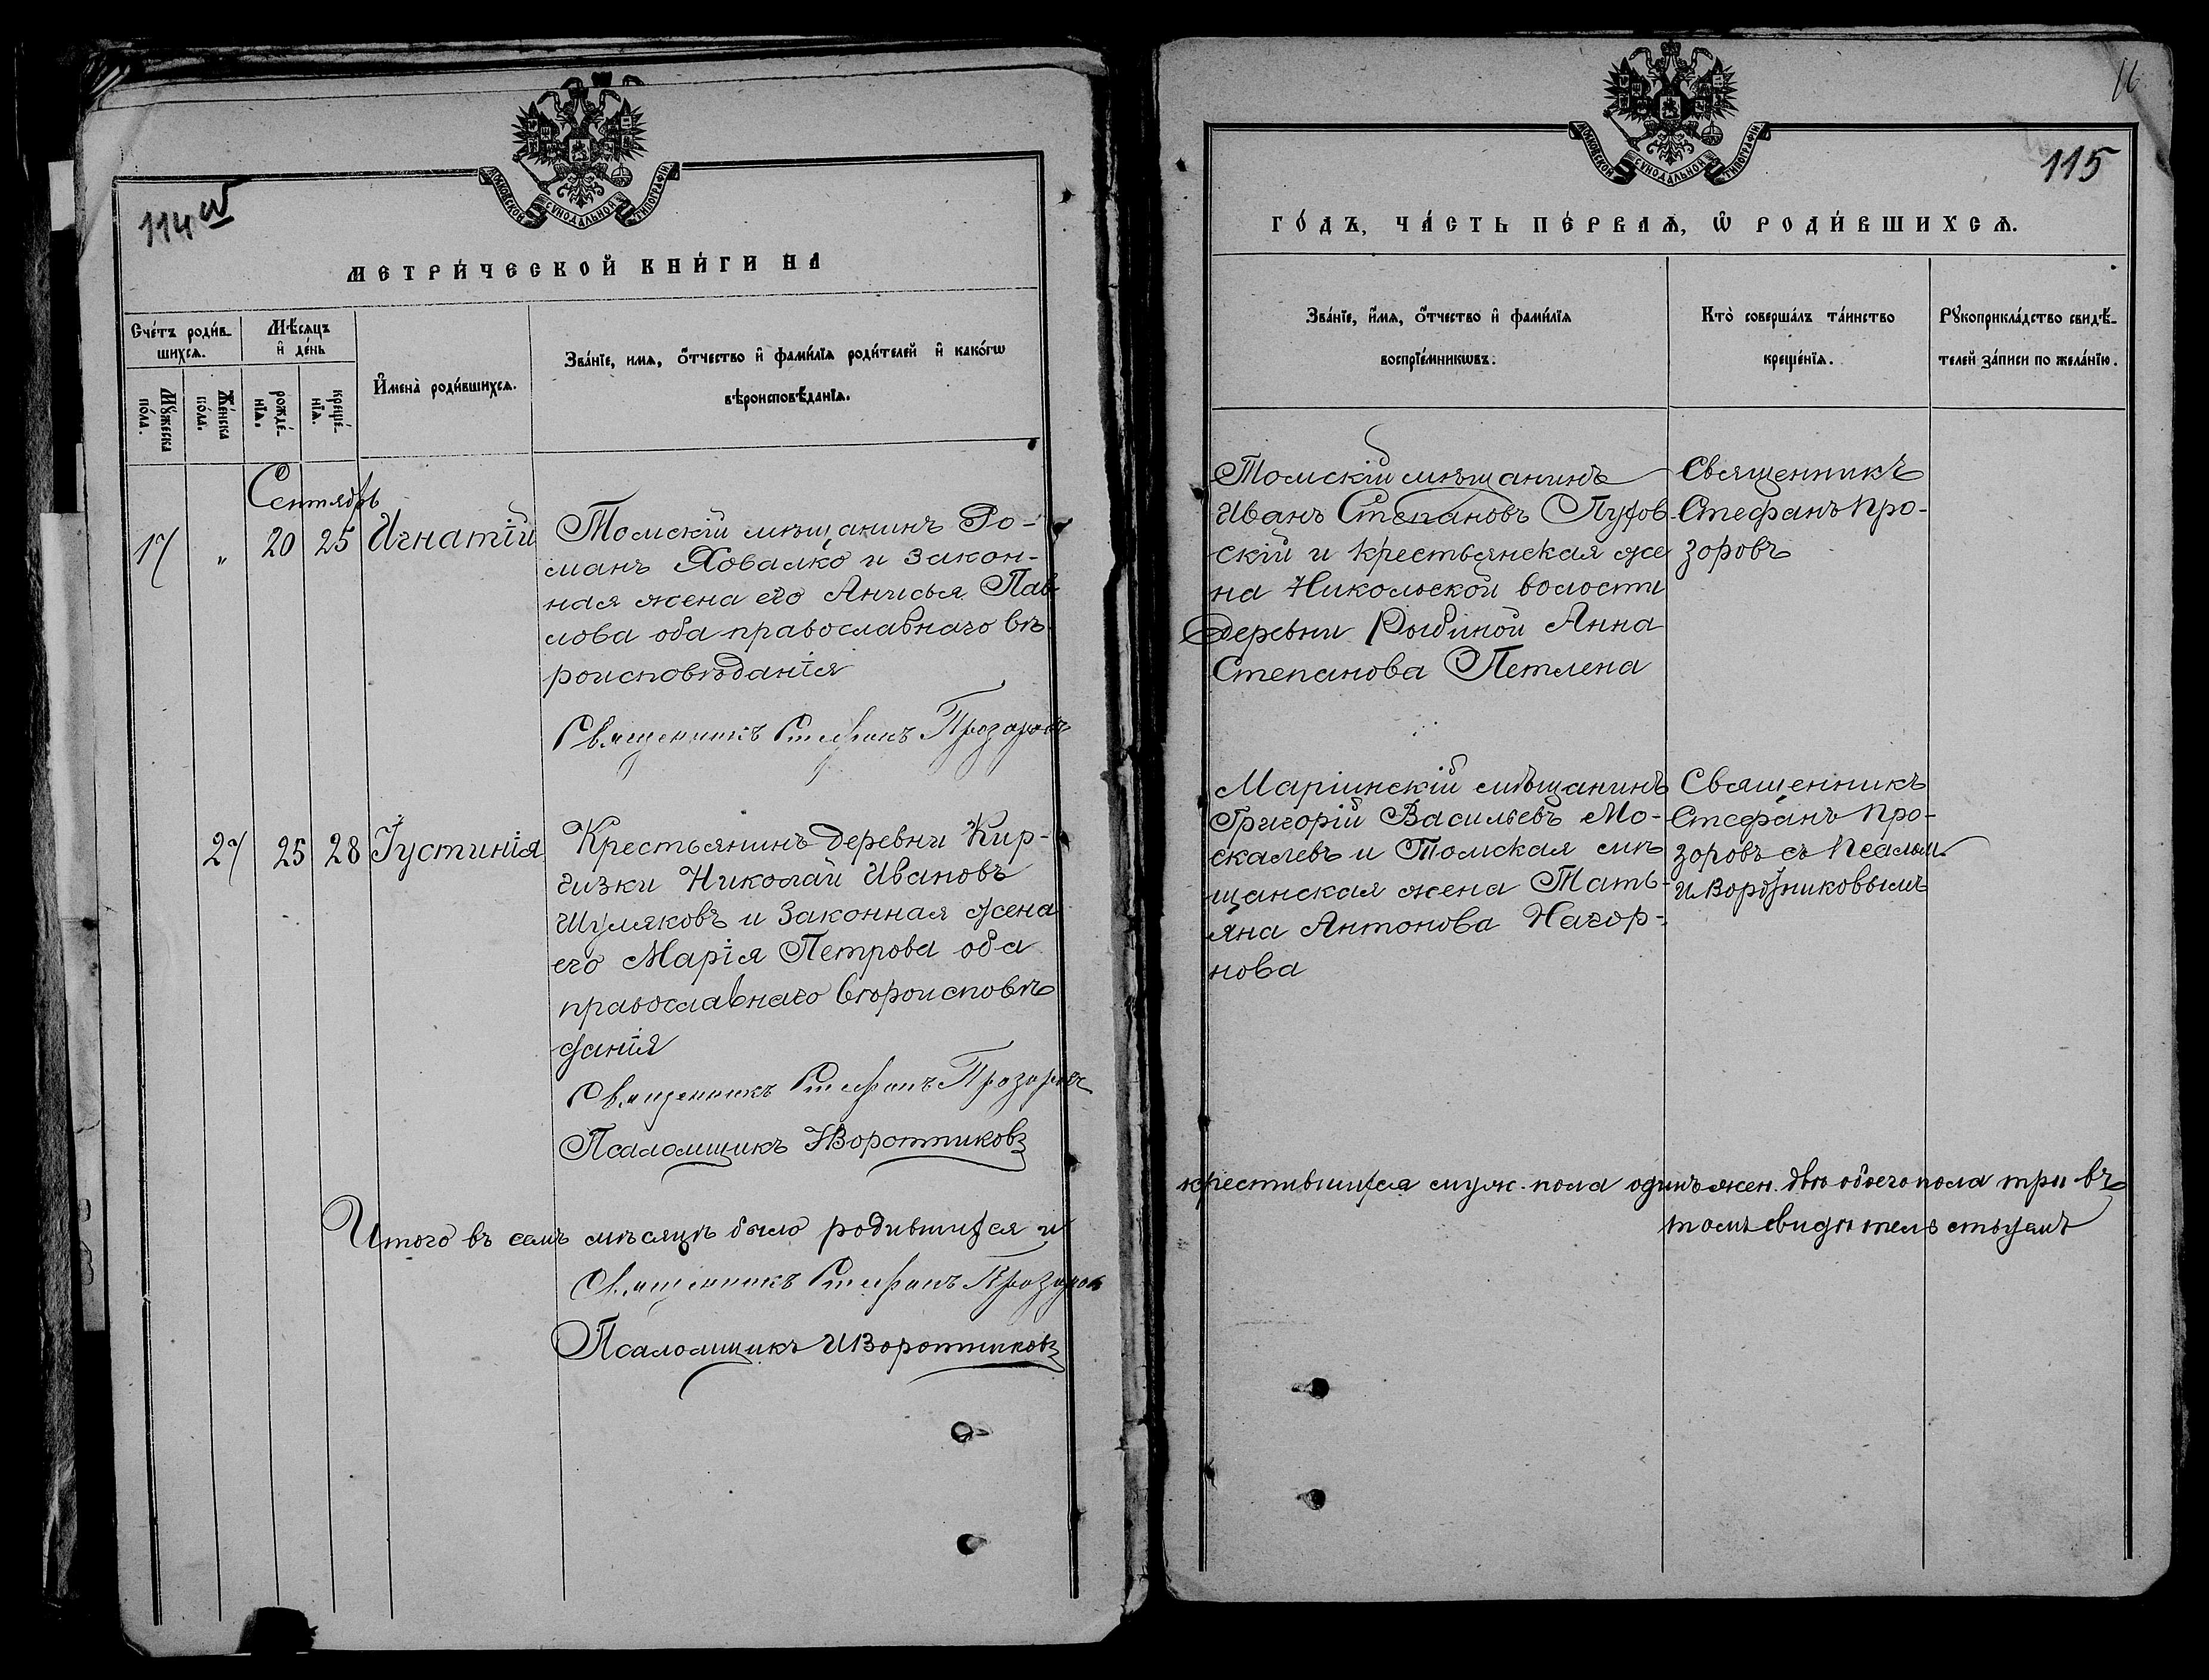 МОСКОВСКОЙ СУНОДАЛЬНОЙ ТИПОГРАФІИ
114 об
МЕТРИ́ЧЕСКОЙ КНИ́ГИ НА
Сче́тъ роди́в-
шихсѧ.
Мѣ́сѧцъ
и҆ де́нь
И҆мена̀ роди́вшихсѧ.
Зва́нїе, имѧ, о҆́тчество и҆ фами́лїѧ роди́телей и҆ како́гѡ
вѣроисповѣ́данїѧ.
Мꙋ́жеска
по́ла.
Же́нска
по́ла.
рожде́-
нїѧ.
креще́-
нїѧ.
Сентябрь
17 „ 20 25 Игнатій
Томскій мѣщанинъ Ро-
манъ Ховалко и закон-
ная жена его Анисья Пав-
лова оба православнаго вѣ-
роисповѣданія
Священникъ Стефанъ Прозоровъ
27 25 28 Іустинія
Крестьянинъ деревни Кир-
гизки Николай Ивановъ
Шуляковъ и законная жена
его Марія Петрова оба
православнаго вѣроисповѣ
данія
Священникъ Стефанъ Прозоровъ
Псаломщикъ И Воротниковъ
Итого въ семъ мѣсяцѣ было родившихся и
Священникъ Стефанъ Прозоровъ
Псаломщикъ И Воротниковъ
16
МОСКОВСКОЙ СУНОДАЛЬНОЙ ТИПОГРАФІИ
115
ГО́ДЪ, ЧА́СТЬ ПЕ́РВАѦ, Ѡ҆ РОДИ́ВШИХСѦ.
Зва́нїе, и҆́мѧ, о҆́тчество и҆ фами́лїѧ
воспрїе́мникѡвъ.
Кто̀ соверша́лъ та́инство
креще́нїѧ.
Рꙋкоприкла́дство свидѣ́-
телей за́писи по жела́нїю.
Томскій мѣщанинъ
Иванъ Степановъ Пухов-
скій и крестьянская же
на Никольской волости
деревни Рыбиной Анна
Степанова Петлена
Священникъ
Стефанъ Про-
зоровъ
Маріинскій мѣщанинъ
Григорій Васильевъ Мо-
скалевъ и Томская мѣ
щанская жена Тать-
яна Антонова Нагор-
нова
Священникъ
Стефанъ Про-
зоровъ съ Псалом.
И Воротниковымъ
крестившихся муж. пола одинъ жен. двѣ обоего пола три въ
томъ свидѣтельствуемъ